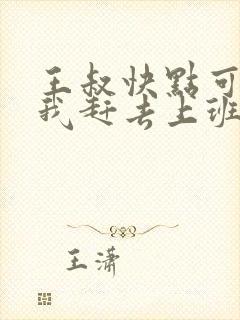 王叔快點可
我赶去上班
王潇